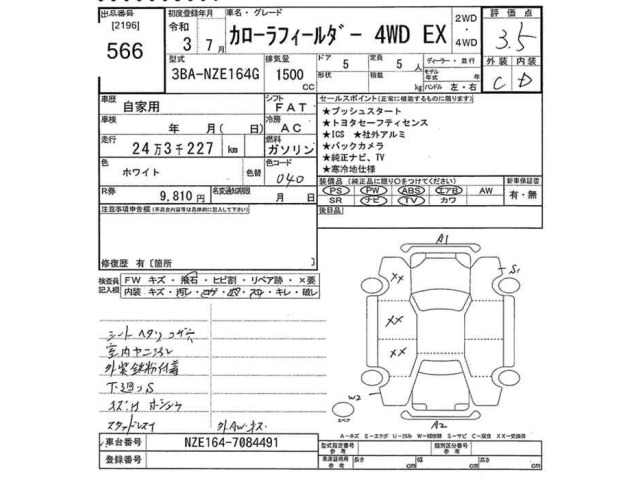 出品番号
[2196]
566
初度登録年月
令和
3 7月
車名・グレード
カローラフィールダー 4WD EX
2WD
・
4WD
評価点
3.5
型式
3BA-NZE164G
排気量
1500
CC
ドア
5
形状
定員
5 人
積載
kg
ディーラー・並行
モデル年式 年
ハンドル 左・右
外装 内装
C D
車歴
自家用
シフト
FAT
車検
年 月( 日)
冷房
AC
走行
24万3千227 km
燃料
ガソリン
色
ホワイト
色替
色コード
040
R券
9,810 円
名変通知期限
月 日
セールスポイント(正常に機能するものに限ります)
★プッシュスタート
★トヨタセーフティセンス
★ICS ★社外アルミ
★バックカメラ
★純正ナビ、TV
★寒冷地仕様
装備品(純正品に限り○をつけてください)
PS PW ABS エアB AW
SR ナビ TV カワ
新車保証書
有・無
注意事項申告欄(不具合内容等は具体的に記入して下さい)
後日品
修復歴 有〔箇所 〕
検査員記入欄
FW キズ・飛石・ヒビ割・リペア跡・×要
内装 キズ・汚レ・コゲ・凹・スレ・キレ・破レ
シートヘタリ コゲ穴
室内ヤニ汚レ
外装鉄粉付着
下廻りS
スタッドレス
外AWキズ
A1
S1
XX
XX
XX
W2
スペア
A2
A-キズ E-エクボ U-凹み W-補修跡 S-サビ C-腐食 XX-交換済
車台番号
NZE164-7084491
登録番号
型式指定番号
参考
類別区分番号
参考
車庫証明用
参考
長さ cm
幅 cm
高さ cm